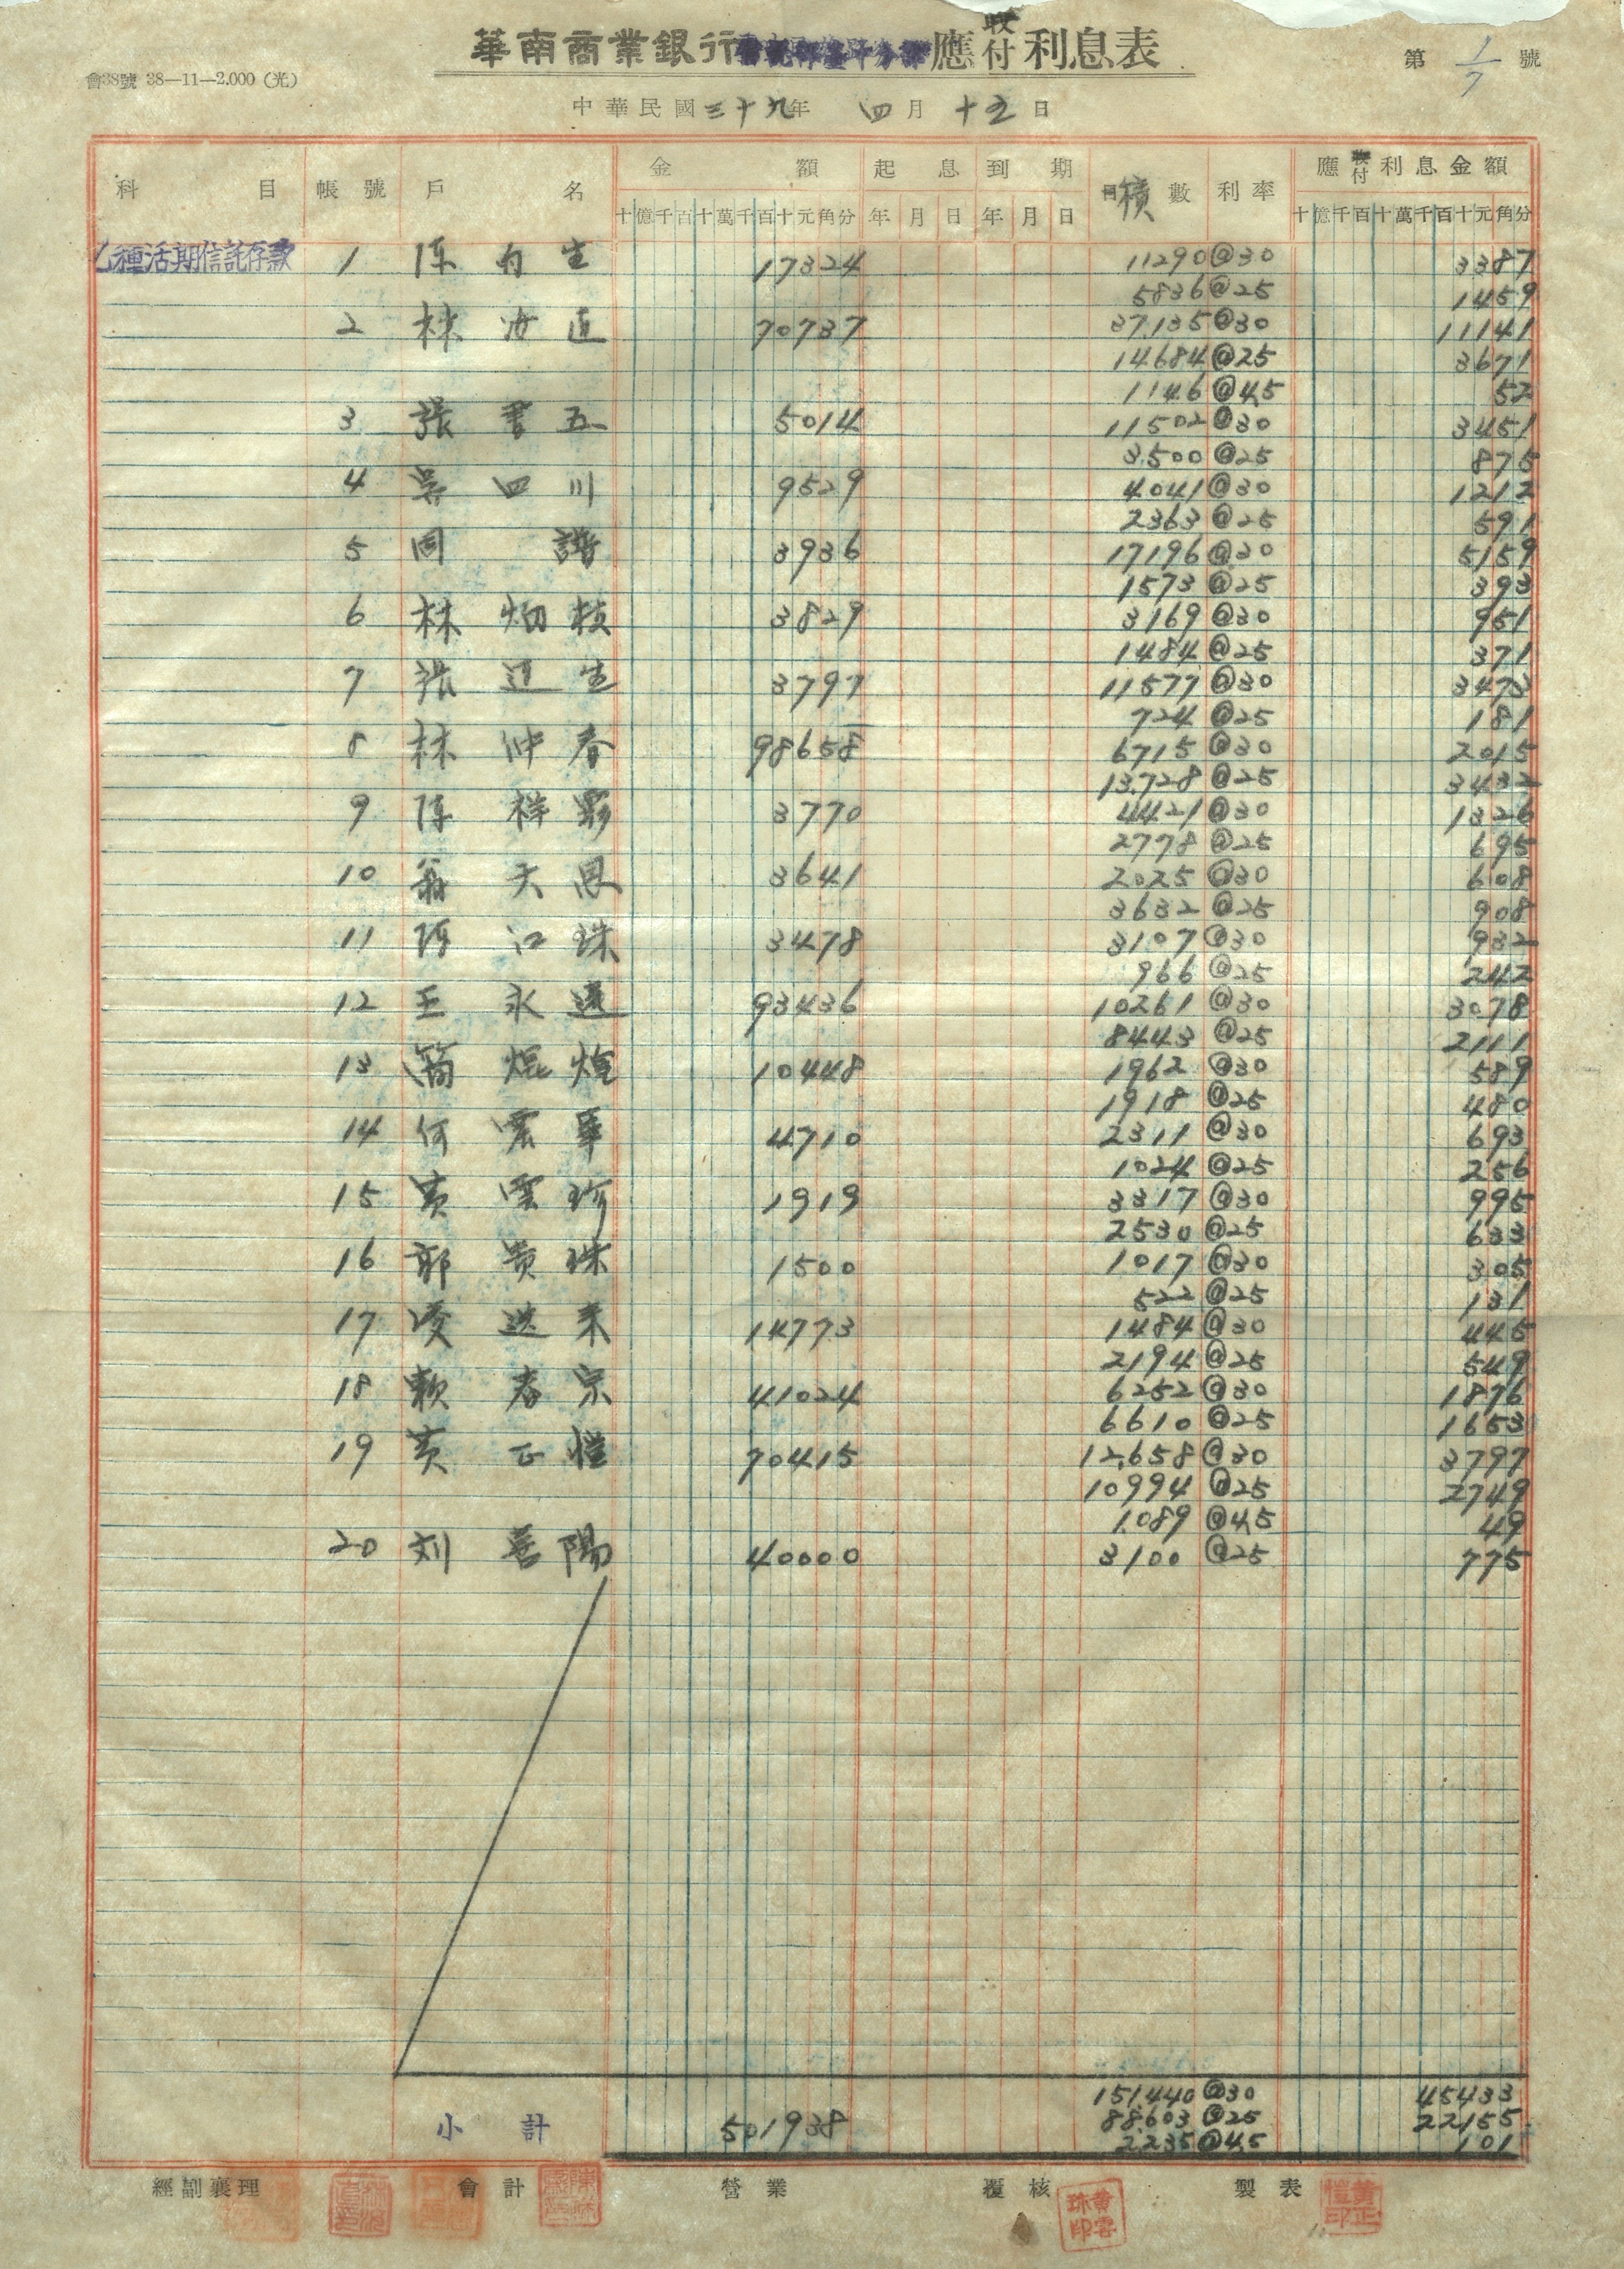 華南商業銀行 應收付利息表
第 1/7 號
會38號 38—11—2.000 (光)
中華民國三十九年 四月 十五日
科目 帳號 戶名 金額 起息 到期 積數 利率 應收付利息金額
十億千百十萬千百十元角分 年月日 年月日 十億千百十萬千百十元角分
乙種活期信託存款 1 陳有生 17324 11290 @30 3387
5836 @25 1459
2 林汝直 70737 37,135 @30 11141
14,684 @25 3671
1146 @4,5 52
3 張書五 5014 11502 @30 3451
3,500 @25 875
4 吳四川 9529 4041 @30 1212
2363 @25 591
5 周譜 3936 17196 @30 5159
1573 @25 393
6 林炳枝 3829 3169 @30 951
1484 @25 371
7 張運生 3797 11577 @30 3473
724 @25 181
8 林仲春 98658 6715 @30 2015
13,728 @25 3432
9 陳梓 3770 4421 @30 1326
2778 @25 695
10 翁天恩 3641 2025 @30 608
3632 @25 908
11 陳江珠 3478 3107 @30 932
966 @25 242
12 王永遠 93436 10261 @30 3078
8443 @25 2111
13 簡焜煌 10448 1962 @30 589
1918 @25 480
14 何 4710 2311 @30 693
1024 @25 256
15 黃雲珍 1919 3317 @30 995
2530 @25 633
16 郭貴珠 1500 1017 @30 305
522 @25 131
17 凌 14773 1484 @30 445
2194 @25 549
18 賴春宗 41024 6252 @30 1876
6610 @25 1653
19 黃正愷 70415 12,658 @30 3797
10994 @25 2749
1,089 @4,5 49
20 刘善陽 40000 3100 @25 775
151,440 @30 45433
小計 501938 88,603 @25 22155
2,235 @4,5 101
經副襄理 會計 營業 覆核 製表
黃雲珠印
黃正愷印